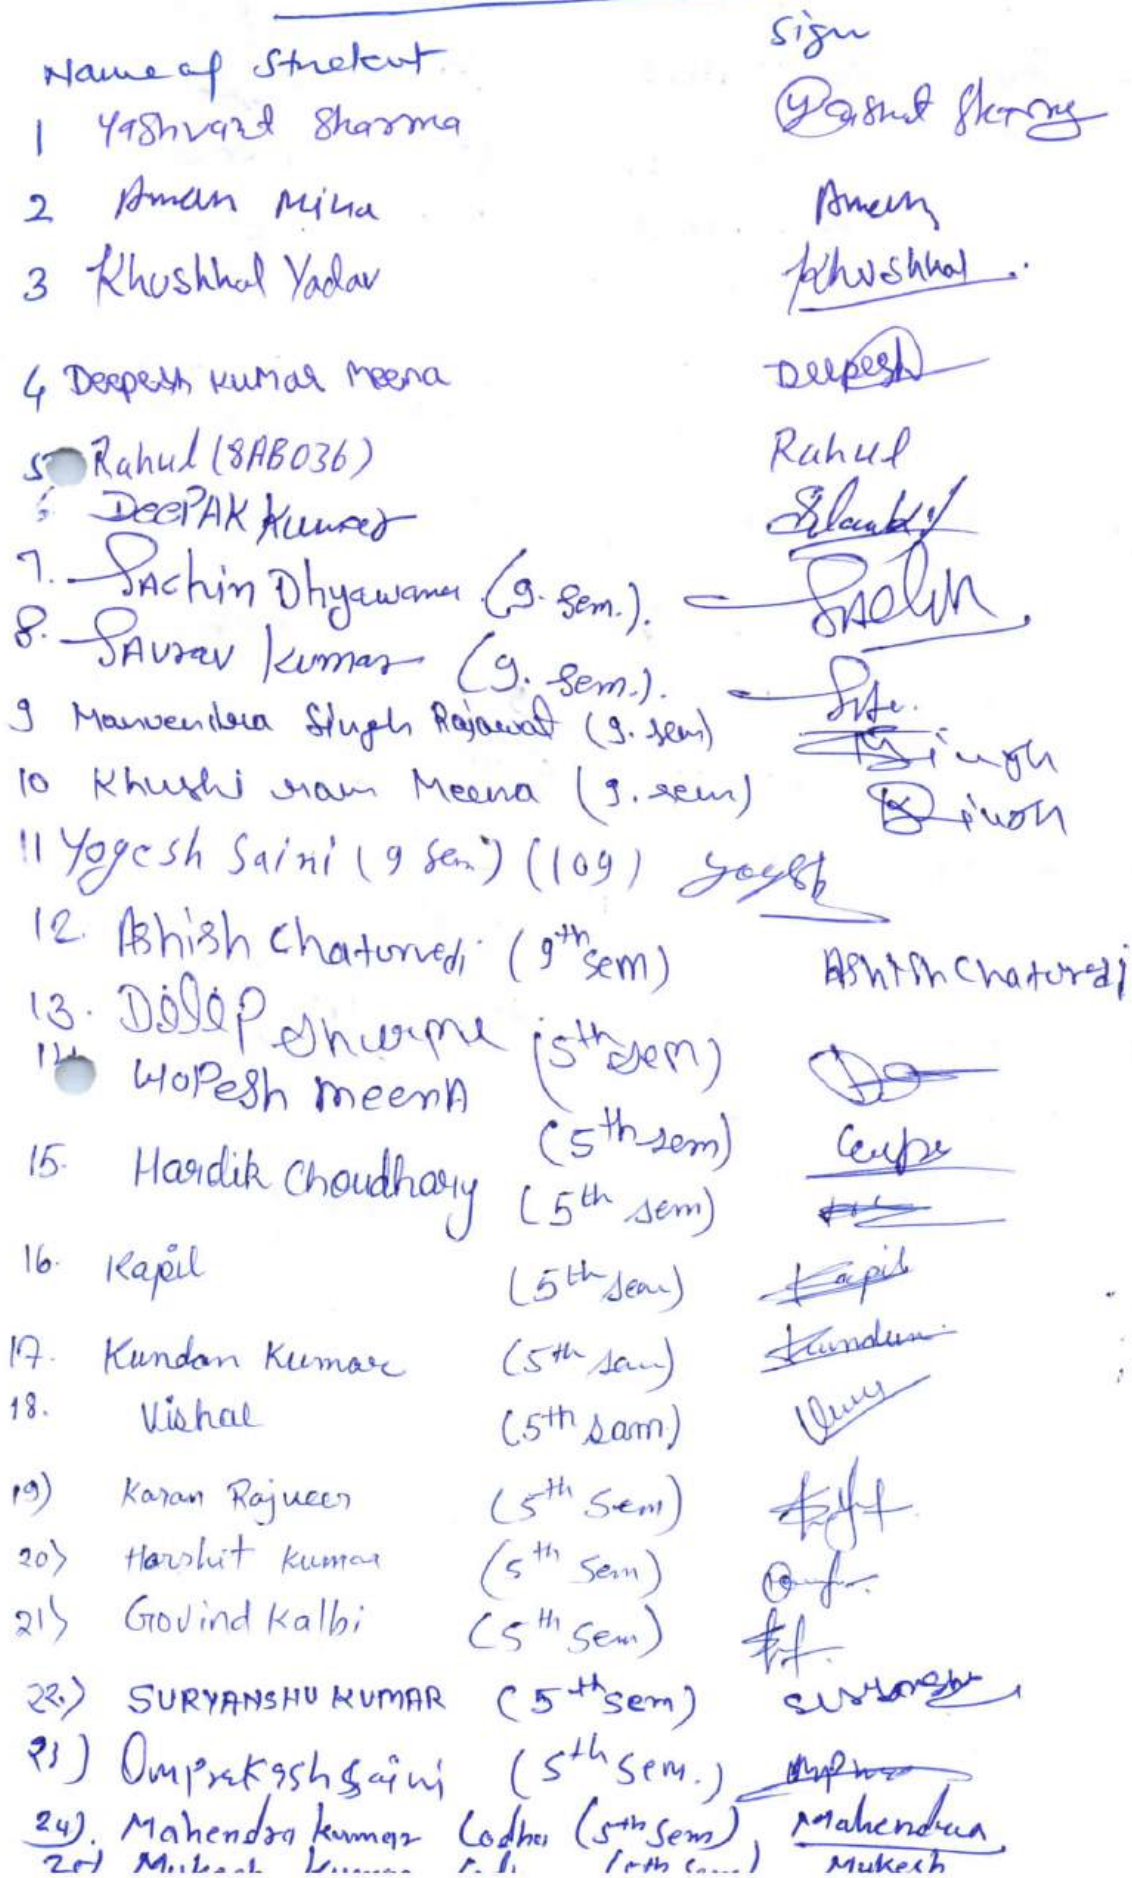 Name of Student Sign
1 Yashvant Sharma Yashvant Sharma
2 Aman Mina Aman
3 Khushhal Yadav Khushhal
4 Deepesh Kumar Meena Deepesh
5 Rahul (8AB036) Rahul
DeePAK Kumar
7. SAchin Dhyawana (9. Sem.). SAchin
8. SAurav Kumar (9. Sem.).
9 Manvendra Singh Rajawat (9. sem) Singh
10 Khushi ram Meena (9. sem)
11 Yogesh Saini (9 Sem) (109) Yogesh
12. Ashish Chaturvedi (9th Sem) Ashish Chaturedi
13. DiliP Sharma (5th sem)
14 LOPesh meenA (5th sem)
15. Hardik Choudhary (5th sem)
16. Kapil (5th sem) Kapil
17. Kundan Kumar (5th sam) Kundan
18. Vishal (5th sam)
19) Karan Rajveer (5th Sem)
20) Harshit Kumar (5th Sem)
21) Govind Kalbi (5th Sem)
22.) SURYANSHU KUMAR (5th sem) Suryanshu
23) Omprakash Saini (5th Sem.)
24). Mahendra Kumar Lodha (5th Sem) Mahendra
Mukesh Kumar Mukesh